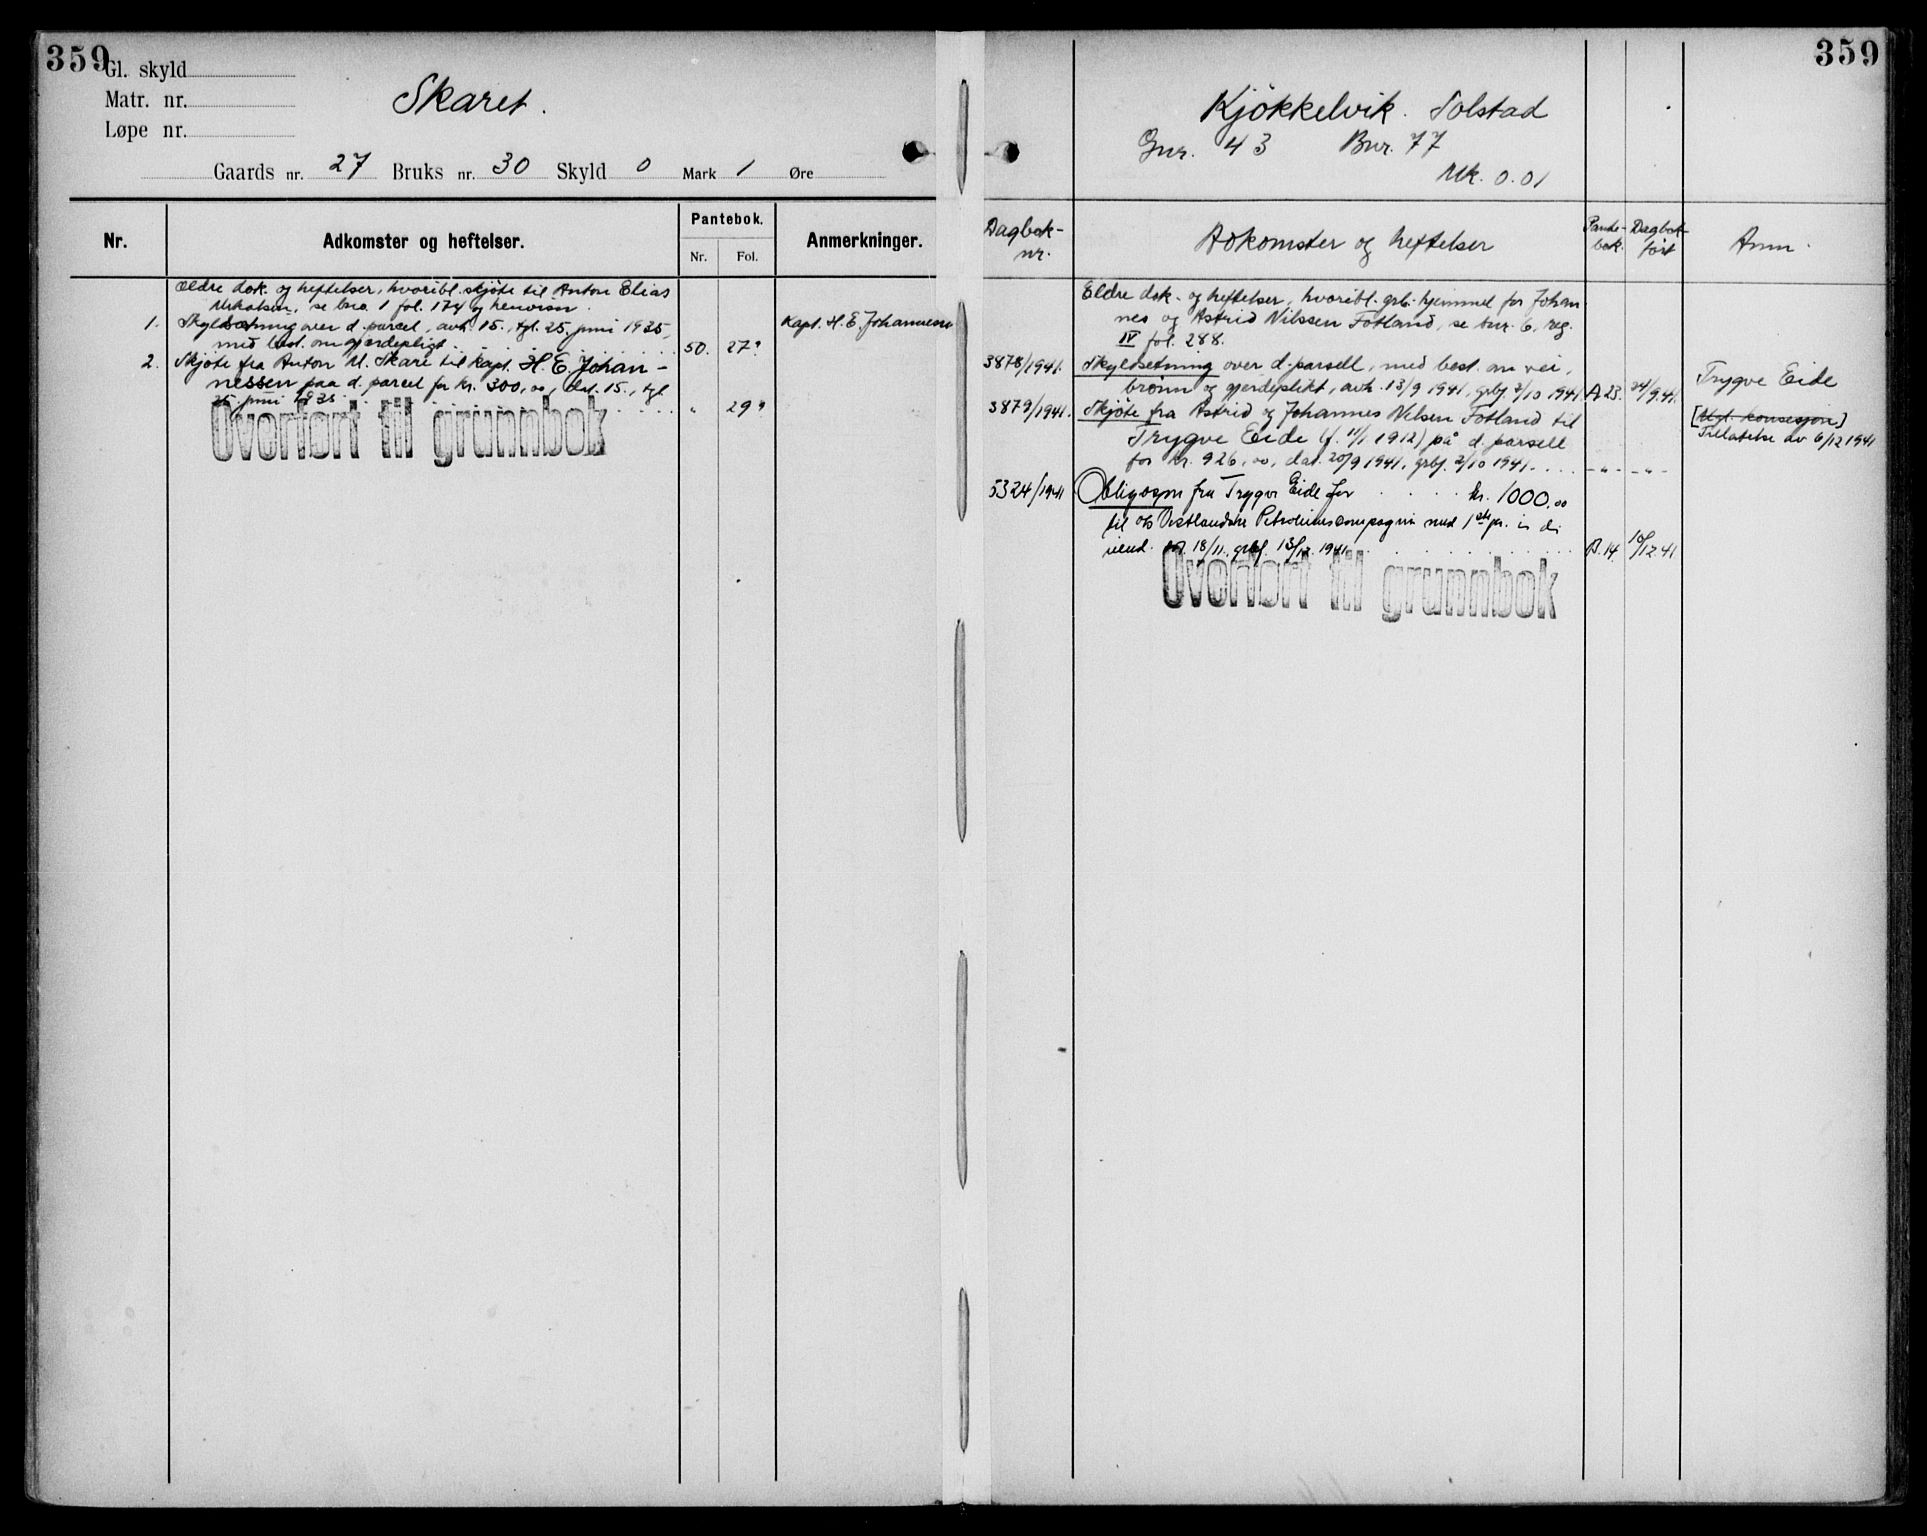 359
Gl. skyld
Matr. nr.
Løpe nr.
Skaret.
Gaards nr. 27 Bruks nr. 30 Skyld 0 Mark 1 Øre
Nr. Adkomster og heftelser. Pantebok. Anmerkninger.
Nr. Fol.
Ældre dok. og heftelser, hvoribl. skjøte til Anton Elias
se bno. 1 fol. 174 og henvisn.
1. Skyldsetning over d. parcel, avh. 15., tgl. 25. juni 1935, Kapt. H. E. Johannessen
med best. om gjerdepligt 50. 27?
2. Skjøte fra Anton M. Skare til Kapt. H. E. Johan-
nessen paa d. parcel for kr. 300,00, dat. 15., tgl.
25. juni 1935 " 29?
Overført til grunnbok
359
Kjökkelvik. Solstad
Gnr. 43 Bnr. 77
Mk. 0.01
Dagbok-
nr. Adkomster og heftelser Pante-
bok. Dagbok-
ført Anm.
Eldre dok. og heftelser, hvoribl. grb. hjemmel for Johan
nes og Astrid Nilssen Fotland, se bnr. 6, reg.
IV fol. 288.
3878/1941. Skyldsetning over d. parsell, med best. om vei,
brønn og gjerdeplikt, avh. 13/9 1941, grbf. 2/10 1941. A 23. 24/9.41. Trygve Eide
3879/1941. Skjøte fra Astrid og Johannes Nilsen Fotland til [Utgl. konsesjon]
Trygve Eide (f. 11/1 1912) på d. parsell Tillatelse av 6/12 1941
for kr. 926,00, dat. 20/9 1941, grbf. 2/10 1941. - " - - " -
5324/1941 Obligasjon fra Trygve Eide for kr. 1000.00
til a/s Vestlandske Petroleumscompagni med 1ste pr. in di
viend. dat. 18/11, grbf. 13/12 1941 B. 14. 10/12 41
Overført til grunnbok